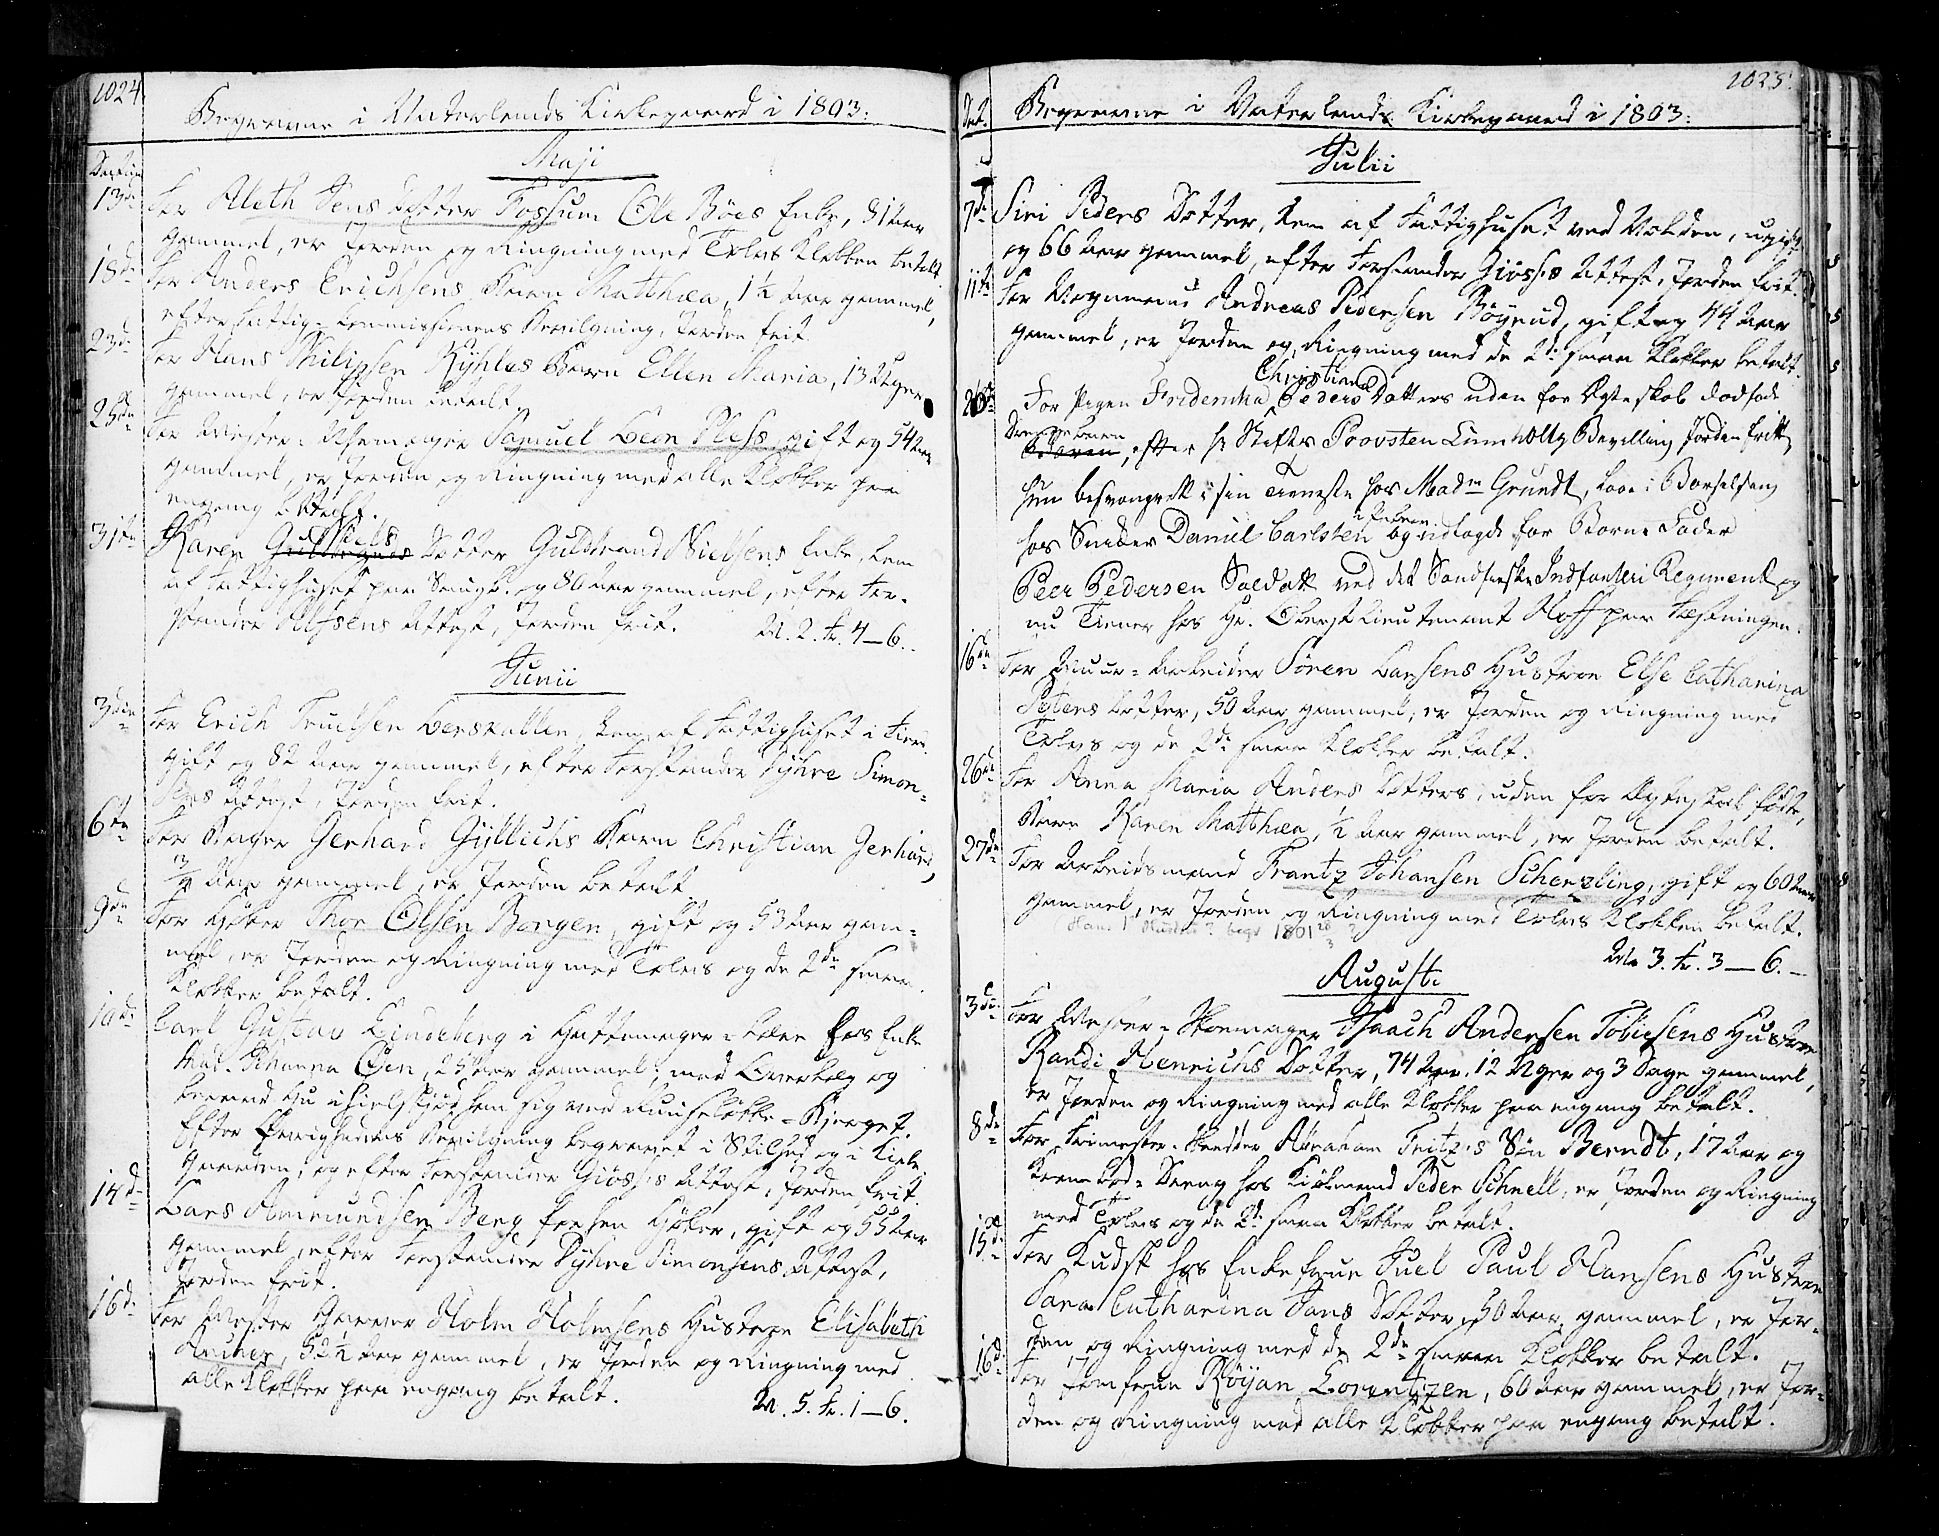 1024
Begravne i Vaterlands Kirkegaard i 1803:
Maji
Datum
13de For Aleth Jens Datter Fossum Ole Böes Enke, 81 Aar
gammel, er Jorden og Ringning med Tolvs Klokken betalt.
18de For Anders Erichsens Barn Matthea, 1½ Aar gammel,
efter Fattig-Commissionens Bevilgning, Jorden frit
23de For Hans Philipsen Kyhles Barn Ellen Maria, 13 Uger
gammel, er Jorden betalt.
25de For Mester Samuel Leon Pless, gift og 54 Aar
gammel, er Jorden og Ringning med alle Klokker paa
engang betalt.
31te Karen Niels Datter Guldbrand Nielsens Enke, Lem
af Fattighuset paa og 80 Aar gammel, efter For-
stander Attest, Jorden frit. M. 2. Fr. 4 – 6.
Junii
3die For Erich Truelsen Lerskallen, Lem af Fattighuset i
gift og 82 Aar gammel, efter Forstander Dyhre Simon-
sens Attest, Jorden frit.
6te For Bager Gerhard Gyllichs Barn Christian Gerhard,
¾ Aar gammel, er Jorden betalt
9de For Høker Thor Olsen Borgen, gift og 53 Aar gam-
mel, er Jorden og Ringning med Tolvs og de 2de smaa
Klokker betalt.
10de Carl Gustav Lindeberg i Hattemager-Lære hos Enke
Mad. Johanna Öen, 25 Aar gammel, med
ihielskjød sig ved
Efter Øvrighedens Bevilgning begravet i Stilhed og i Kirke
gaarden, og efter Forstander Giös's Attest, Jorden frit.
14de Lars Amundsen Berg forhen Høker, gift og 55 Aar
gammel, efter Forstander Dyhre Simonsens Attest,
Jorden frit.
16de For Mester Garver Holm Holmsens Hustroe Elisabeth
52½ Aar gammel, er Jorden og Ringning med
alle Klokker paa engang betalt. M. 5. Fr. 1 – 6.
1025.
Dat. Begravne i Vaterlands Kirkegaard i 1803:
Julii
7de Siri Peders Datter, Lem af Fattighuset ved Volden, ugift
og 66 Aar gammel, efter Forstander Giös's Attest, Jorden frit.
11te For Vognmand Andreas Pedersen Böyrud, gift og 44 Aar
gammel, er Jorden og Ringning med de 2de smaa Klokker betalt.
Christiane
For Pigen Fridericha Peders Datters uden for Ægteskab dødfød
Drengebarn
, efter Hr Stifts Provsten Lumholtz Bevilling Jorden fritt
hun besvangret i sin Tieneste hos Madm Grundt, Loge i Barselseng
hos Snedker Daniel Carlsten og udlagde for Barne Fader
Peer Pedersen Soldatt ved det Søndfieldske Indfanteri Regiment og
nu Tiener hos Hr. Oberst Lieutenant Hoff paa Fæstningen.
16de For Muur-Arbeider Sören Larsens Hustroe Else Catharina
Peters Datter, 50 Aar gammel, er Jorden og Ringning med
Tolvs og de 2de smaa Klokker betalt.
26de For Anna Maria Anders Datters, uden for Ægteskab fødte,
Barn Karen Matthea, ½ Aar gammel, er Jorden betalt.
27de For Arbeidsmand Frantz Johansen Scherzling, gift og 60 Aar
gammel, er Jorden og Ringning med Tolvs Klokken betalt.
begr 1801
M. 3. Fr. 3 – 6.
Augusti
3die For Mester-Skomager Isaach Andersen Tobiesens Hustroe
Randi Henrichs Datter, 74 Aar, 12 Uger og 3 Dage gammel,
er Jorden og Ringning med alle Klokker paa engang betalt.
8de For Frimester-Skrædder Abraham Fritz's Søn Berndt, 17 Aar og
Krambod-Dreng hos Kiøbmand Peder Schnell, er Jorden og Ringning
med Tolvs og de 2de smaa Klokker betalt.
15de For Kudsk hos Enke Frue Juel Paul Hansens Hustroe
Sara Catharina Jans Datter, 50 Aar gammel, er Jor-
den og Ringning med de 2de smaa Klokker betalt.
16de For Jomfrue Röyan Lorentzen, 60 Aar gammel, er Jor-
den og Ringning med alle Klokker paa engang betalt.